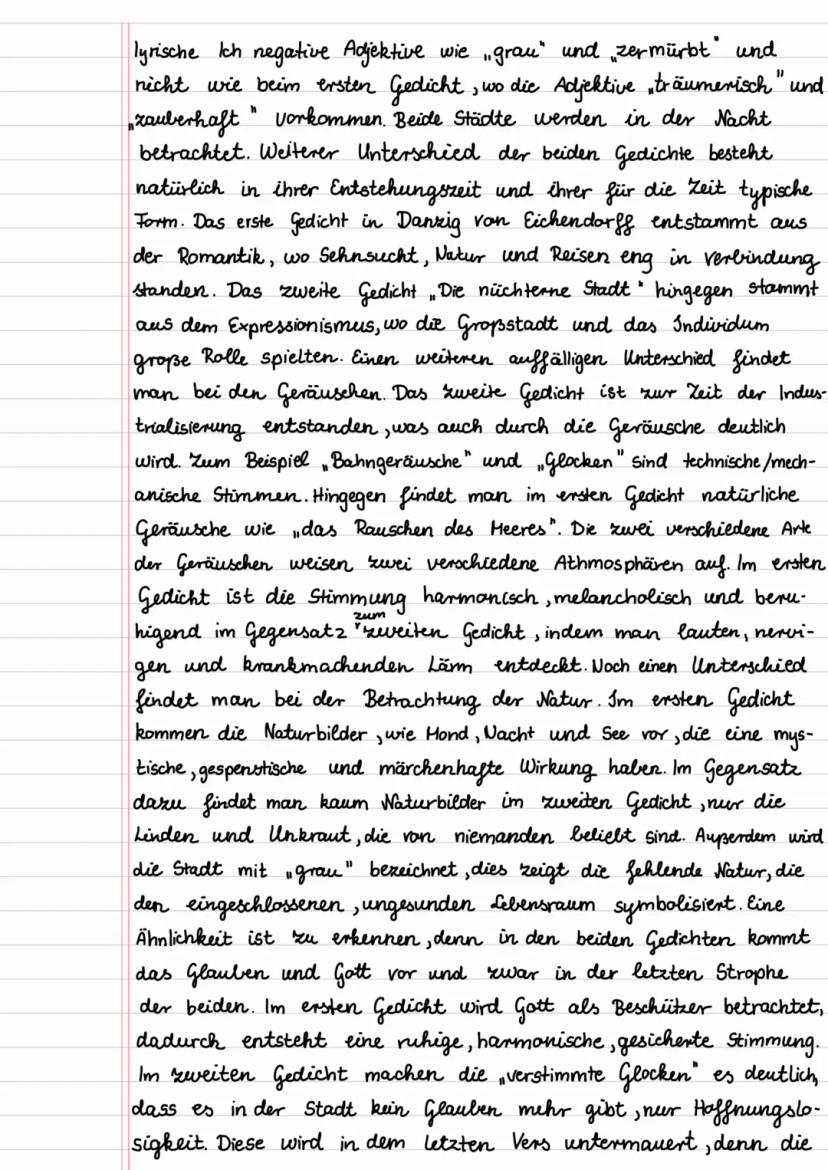 lyrische Ich negative Adjektive wie „grau" und „zermürbt" und
nicht wie beim ersten Gedicht, wo die Adjektive „träumerisch" und
„zauberhaft" vorkommen. Beide Städte werden in der Nacht
betrachtet. Weiterer Unterschied der beiden Gedichte besteht
natürlich in ihrer Entstehungszeit und ihrer für die Zeit typische
Form. Das erste Gedicht in Danzig von Eichendorff entstammt aus
der Romantik, wo Sehnsucht, Natur und Reisen eng in Verbindung
standen. Das zweite Gedicht „Die nüchterne Stadt" hingegen stammt
aus dem Expressionismus, wo die Großstadt und das Individum
große Rolle spielten. Einen weiteren auffälligen Unterschied findet
man bei den Geräuschen. Das zweite Gedicht ist zur Zeit der Indus-
trialisierung entstanden, was auch durch die Geräusche deutlich
wird. Zum Beispiel „Bahngeräusche" und „Glocken" sind technische/mech-
anische Stimmen. Hingegen findet man im ersten Gedicht natürliche
Geräusche wie „das Rauschen des Meeres". Die zwei verschiedene Arte
der Geräuschen weisen zwei verschiedene Athmosphären auf. Im ersten
Gedicht ist die Stimmung harmonisch, melancholisch und beru-
higend im Gegensatz zum zweiten Gedicht, indem man lauten, nervi-
gen und krankmachenden Lärm entdeckt. Noch einen Unterschied
findet man bei der Betrachtung der Natur. Im ersten Gedicht
kommen die Naturbilder, wie Mond, Nacht und See vor, die eine mys-
tische, gespenstische und märchenhafte Wirkung haben. Im Gegensatz
dazu findet man kaum Naturbilder im zweiten Gedicht, nur die
Linden und Unkraut, die von niemanden beliebt sind. Außerdem wird
die Stadt mit „grau" bezeichnet, dies zeigt die fehlende Natur, die
den eingeschlossenen, ungesunden Lebensraum symbolisiert. Eine
Ähnlichkeit ist zu erkennen, denn in den beiden Gedichten kommt
das Glauben und Gott vor und zwar in der letzten Strophe
der beiden. Im ersten Gedicht wird Gott als Beschützer betrachtet,
dadurch entsteht eine ruhige, harmonische, gesicherte Stimmung.
Im zweiten Gedicht machen die „verstimmte Glocken" es deutlich,
dass es in der Stadt kein Glauben mehr gibt, nur Hoffnungslo-
sigkeit. Diese wird in dem letzten Vers untermauert, denn die